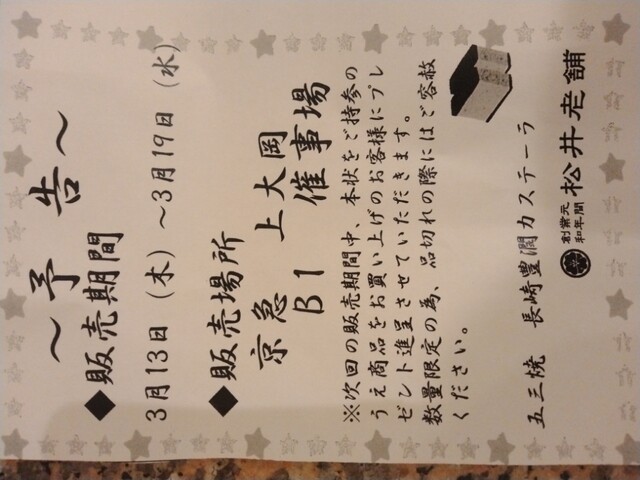 ～予告～
◆販売期間
3月13日（木）～3月19日（水）
◆販売場所
京急 上大岡
B1 催事場
※次回の販売期間中、本状をご持参の
うえ商品をお買い上げのお客様にプレ
ゼント進呈させていただきます。
数量限定の為、品切れの際にはご容赦
ください。
五三焼 長崎豊潤カステーラ
創業元
和年間
松井老舗